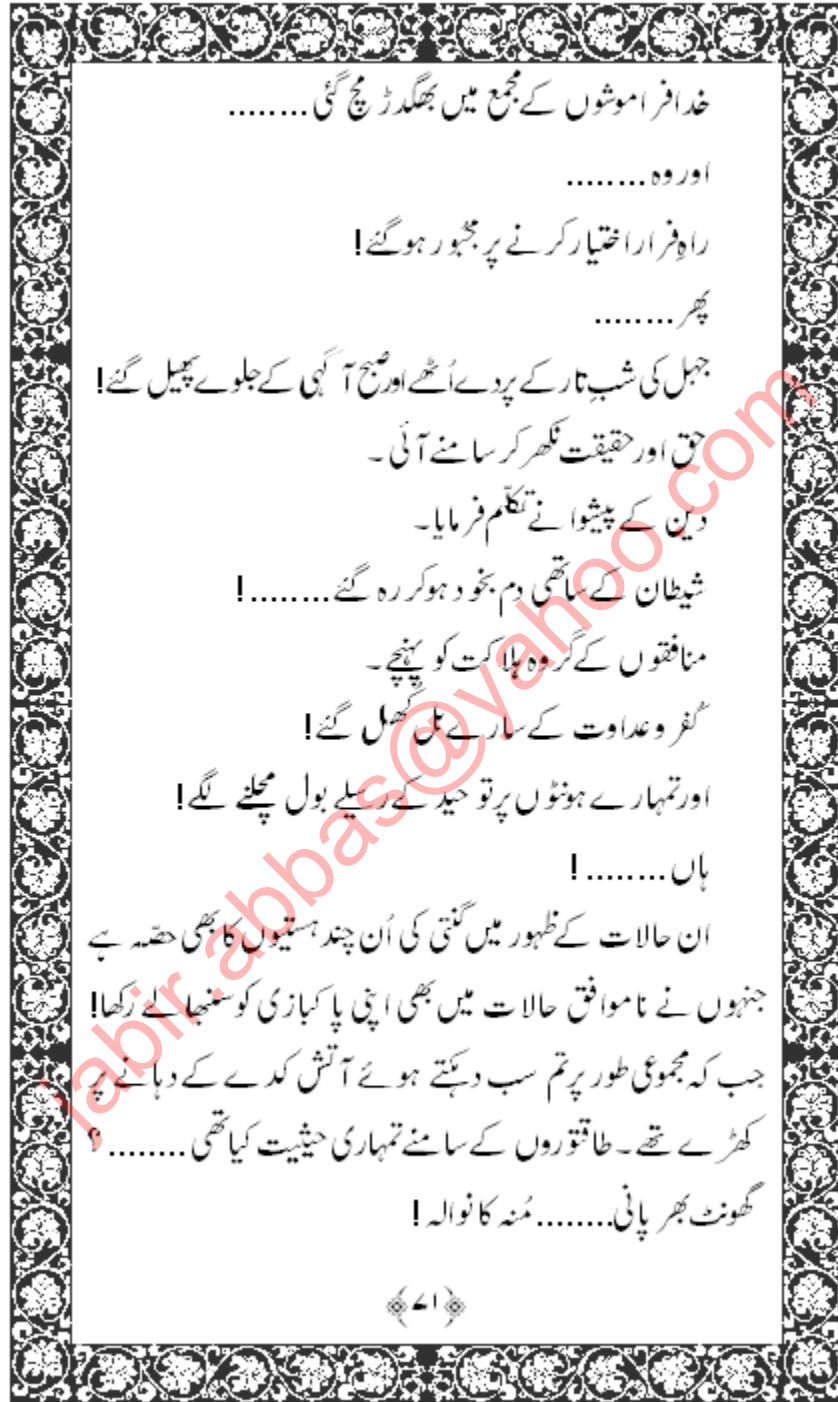 خدافراموشوں کے مجمع میں بھگدڑ مچ گئی ........
اور وہ ........
راہِ فرار اختیار کرنے پر مجبور ہوگئے!
پھر ........
جہل کی شبِ تار کے پردے اُٹھے اور صبح آگہی کے جلوے پھیل گئے!
حق اور حقیقت نکھر کر سامنے آئی ۔
دین کے پیشوا نے تکلّم فرمایا۔
شیطان کے ساتھی دم بخود ہوکر رہ گئے ........!
منافقوں کے گروہ ہلاکت کو پہنچے ۔
کُفر و عداوت کے سارے بل کُھل گئے!
اور تمہارے ہونٹوں پر توحید کے رسیلے بول مچلنے لگے!
ہاں ........!
ان حالات کے ظہور میں گنتی کی اُن چند ہستیوں کا بھی حصّہ ہے
جنہوں نے ناموافق حالات میں بھی اپنی پاکبازی کو سنبھالے رکھا!
جب کہ مجموعی طور پر تم سب دہکتے ہوئے آتش کدے کے دہانے پر
کھڑے تھے ۔ طاقتوروں کے سامنے تمہاری حیثیت کیا تھی ........؟
گھونٹ بھر پانی ........ مُنہ کا نوالہ!
﴿۷۱﴾
jabir.abbas@yahoo.com